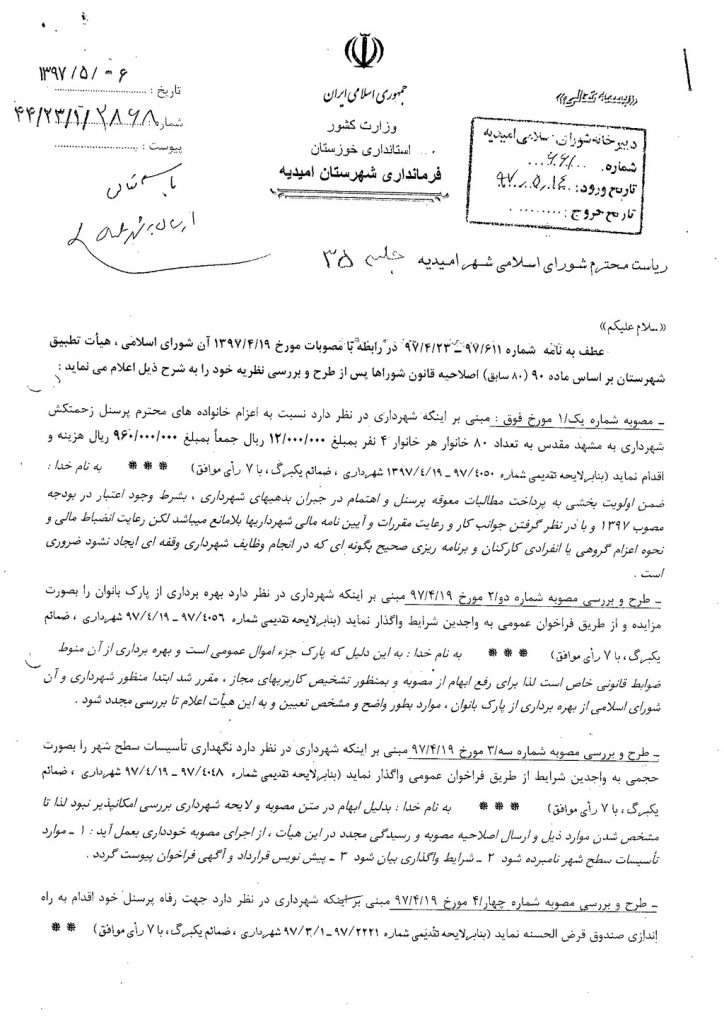 «بسمه تعالی»
جمهوری اسلامی ایران
وزارت کشور
استانداری خوزستان
فرمانداری شهرستان امیدیه
تاریخ : ۱۳۹۷/۵/۰۶
شماره : ۴۴/۲۳/۱/۲۸۶۸
پیوست :
باسمه تعالی
دبیرخانه شورای اسلامی امیدیه
شماره: ۶۶۱۰۰
تاریخ ورود: ۹۷.۵.۱۴
تاریخ خروج :
ریاست محترم شورای اسلامی شهر امیدیه جلسه ۳۵
«سلام علیکم»
عطف به نامه شماره ۹۷/۶۱۱ ــ ۹۷/۴/۲۳ در رابطه با مصوبات مورخ ۱۳۹۷/۴/۱۹ آن شورای اسلامی ، هیأت تطبیق
شهرستان بر اساس ماده ۹۰ (۸۰ سابق) اصلاحیه قانون شوراها پس از طرح و بررسی نظریه خود را به شرح ذیل اعلام می نماید :
ــ مصوبه شماره یک/۱ مورخ فوق : مبنی بر اینکه شهرداری در نظر دارد نسبت به اعزام خانواده های محترم پرسنل زحمتکش
شهرداری به مشهد مقدس به تعداد ۸۰ خانوار هر خانوار ۴ نفر بمبلغ ۱۲/۰۰۰/۰۰۰ ریال جمعاً بمبلغ ۹۶۰/۰۰۰/۰۰۰ ریال هزینه و
اقدام نماید (بنابر لایحه تقدیمی شماره ۹۷/۴۰۵۰ ــ ۱۳۹۷/۴/۱۹ شهرداری ، ضمائم یکبرگ، با ۷ رأی موافق) *** به نام خدا :
ضمن اولویت بخشی به پرداخت مطالبات معوقه پرسنل و اهتمام در جبران بدهیهای شهرداری ، بشرط وجود اعتبار در بودجه
مصوب ۱۳۹۷ و با در نظر گرفتن جوانب کار و رعایت مقررات و آیین نامه مالی شهرداریها بلامانع میباشد لکن رعایت انضباط مالی و
نحوه اعزام گروهی یا انفرادی کارکنان و برنامه ریزی صحیح بگونه ای که در انجام وظایف شهرداری وقفه ای ایجاد نشود ضروری
است .
ــ طرح و بررسی مصوبه شماره دو/۲ مورخ ۹۷/۴/۱۹ مبنی بر اینکه شهرداری در نظر دارد بهره برداری از پارک بانوان را بصورت
مزایده و از طریق فراخوان عمومی به واجدین شرایط واگذار نماید (بنابر لایحه تقدیمی شماره ۹۷/۴۰۵۶ ــ ۹۷/۴/۱۹ شهرداری ، ضمائم
یکبرگ، با ۷ رأی موافق) *** به نام خدا : به این دلیل که پارک جزء اموال عمومی است و بهره برداری از آن منوط
ضوابط قانونی خاص است لذا برای رفع ابهام از مصوبه و بمنظور تشخیص کاربریهای مجاز ، مقرر شد ابتدا منظور شهرداری و آن
شورای اسلامی از بهره برداری از پارک بانوان ، موارد بطور واضح و مشخص تعیین و به این هیأت اعلام تا بررسی مجدد شود .
ــ طرح و بررسی مصوبه شماره سه/۳ مورخ ۹۷/۴/۱۹ مبنی بر اینکه شهرداری در نظر دارد نگهداری تأسیسات سطح شهر را بصورت
حجمی به واجدین شرایط از طریق فراخوان عمومی واگذار نماید (بنابر لایحه تقدیمی شماره ۹۷/۴۰۴۸ ــ ۹۷/۴/۱۹ شهرداری ، ضمائم
یکبرگ، با ۷ رأی موافق) *** به نام خدا : بدلیل ابهام در متن مصوبه و لایحه شهرداری بررسی امکانپذیر نبود لذا تا
مشخص شدن موارد ذیل و ارسال اصلاحیه مصوبه و رسیدگی مجدد در این هیأت ، از اجرای مصوبه خودداری بعمل آید : ۱ ــ موارد
تأسیسات سطح شهر نامبرده شود ۲ ــ شرایط واگذاری بیان شود ۳ ــ پیش نویس قرارداد و آگهی فراخوان پیوست گردد .
ــ طرح و بررسی مصوبه شماره چهار/۴ مورخ ۹۷/۴/۱۹ مبنی بر اینکه شهرداری در نظر دارد جهت رفاه پرسنل خود اقدام به راه
اندازی صندوق قرض الحسنه نماید (بنابر لایحه تقدیمی شماره ۹۷/۲۲۲۱ ــ ۹۷/۳/۱ شهرداری ، ضمائم یکبرگ، با ۷ رأی موافق) **